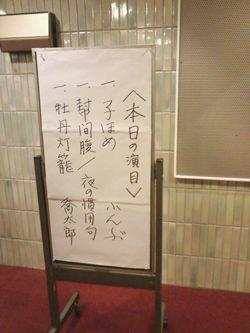 ＜本日の演目＞
一、子ほめ ふんぶ
一、幇間腹／夜の慣用句
一、牡丹灯籠 喬太郎